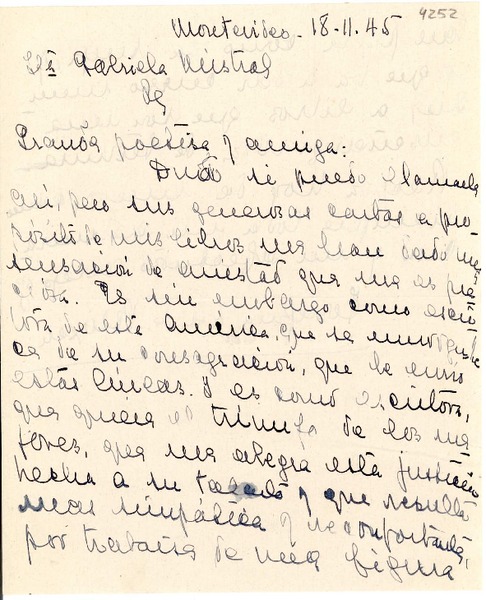 4252
Montevideo - 18-11-45
Sta Gabriela Mistral
Grande poetisa y amiga:
Dudo si puedo llamarla
así, pero sus generosas cartas a pro-
pósito de mis libros me han dado una
sensación de amistad que me es pre-
ciosa. Es sin embargo como escri-
tora de esta América, que se enorgullece
de su consagración, que le envío
estas líneas. Y es como escritora,
que quiere el triunfo de los me-
jores, que me alegra esta justicia
hecha a su talento y que resulta
mas simpática y reconfortante,
por tratarse de una figura